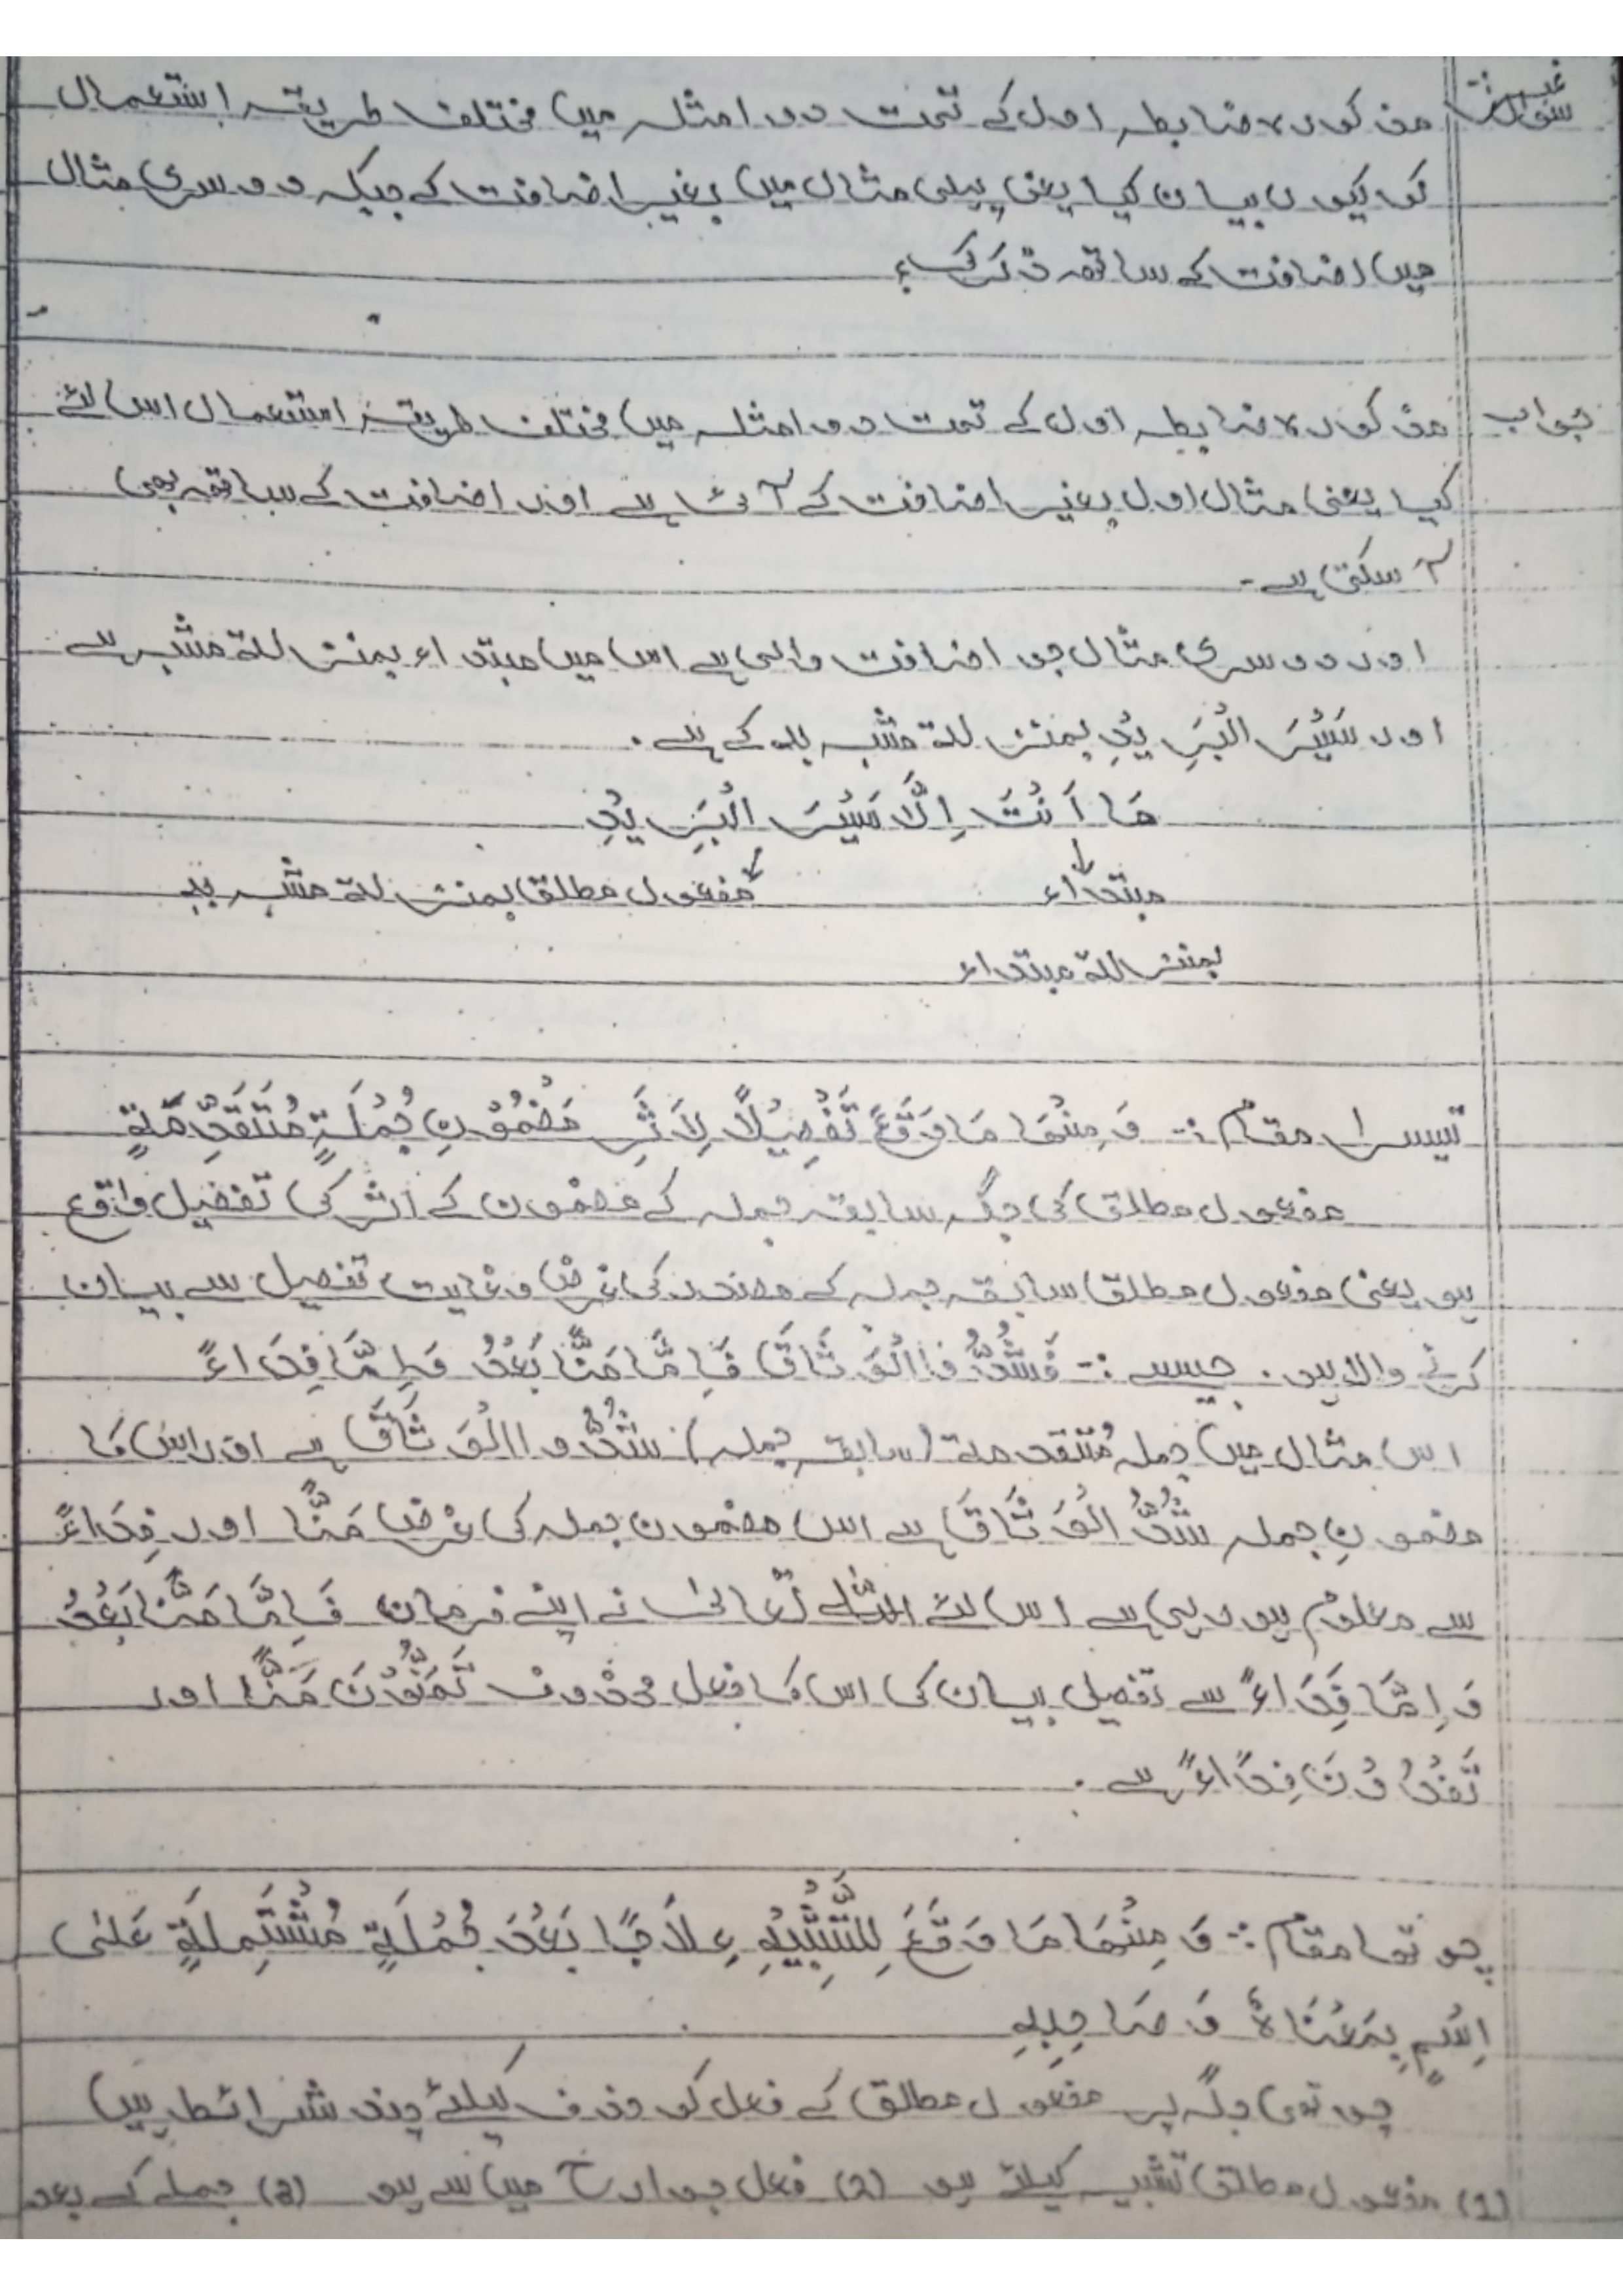 سوال مذکورہ ضابطہ اول کے تحت دو امثلہ میں مختلف طریقہ استعمال
کو کیوں بیان کیا یعنی پہلی مثال میں بغیر اضافت کے جبکہ دوسری مثال
میں اضافت کے ساتھ ذکر کیا؟
جواب مذکورہ ضابطہ اول کے تحت دو امثلہ میں مختلف طریقہ استعمال اس لئے
کیا یعنی مثال اول بغیر اضافت کے آتی ہے اور اضافت کے ساتھ بھی
آ سکتی ہے۔
اور دوسری مثال جو اضافت والی ہے اس میں مبتداء بمنزلۃ مشبہ ہے
اور سَیْرَ الْبَرِیْدِ بمنزلۃ مشبہ بہ کے ہے۔
مَا اَنْتَ اِلَّا سَیْرَ الْبَرِیْدِ
مبتداء مفعول مطلق بمنزلۃ مشبہ بہ
بمنزلۃ مبتداء
تیسرا مقام :۔ وَ مِنْهَا مَا وَقَعَ تَفْصِیْلًا لِاَثَرِ مَضْمُوْنِ جُمْلَةٍ مُتَقَدِّمَةٍ
مفعول مطلق کی جگہ سابقہ جملہ کے مضمون کے اثر کی تفصیل واقع
ہو یعنی مفعول مطلق سابقہ جملہ کے مصدر کی غرض و غایت تفصیل سے بیان
کرنے والا ہو۔ جیسے :۔ فَشُدُّوا الْوَثَاقَ فَاِمَّا مَنًّا بَعْدُ وَاِمَّا فِدَاءً
اس مثال میں جملہ مُتقدمۃ (سابقہ جملہ) شُدُّوا الْوَثَاقَ ہے اور اس کا
مضمونِ جملہ شَدُّ الْوَثَاقَ ہے اس مضمون جملہ کی غرض مَنًّا اور فِدَاءً
سے معلوم ہو رہی ہے اس لئے اللہ تعالیٰ نے اپنے فرمان فَاِمَّا مَنًّا بَعْدُ
وَ اِمَّا فِدَاءً سے تفصیل بیان کی اس کا فعل محذوف تَمَنُّوْنَ مَنًّا اور
تَفْدُوْنَ فِدَاءً ہے۔
چوتھا مقام :۔ وَ مِنْهَا مَا وَقَعَ لِلتَّشْبِیْهِ عِلَاجًا بَعْدَ جُمْلَةٍ مُشْتَمِلَةٍ عَلٰی
اِسْمٍ بِمَعْنَاهُ وَ صَاحِبِهِ
چوتھی جگہ پر مفعول مطلق کے فعل کو حذف کیلئے چند شرائط ہیں
(1) مفعول مطلق تشبیہ کیلئے ہو (2) فعل جوارح میں سے ہو (3) جملے کے بعد